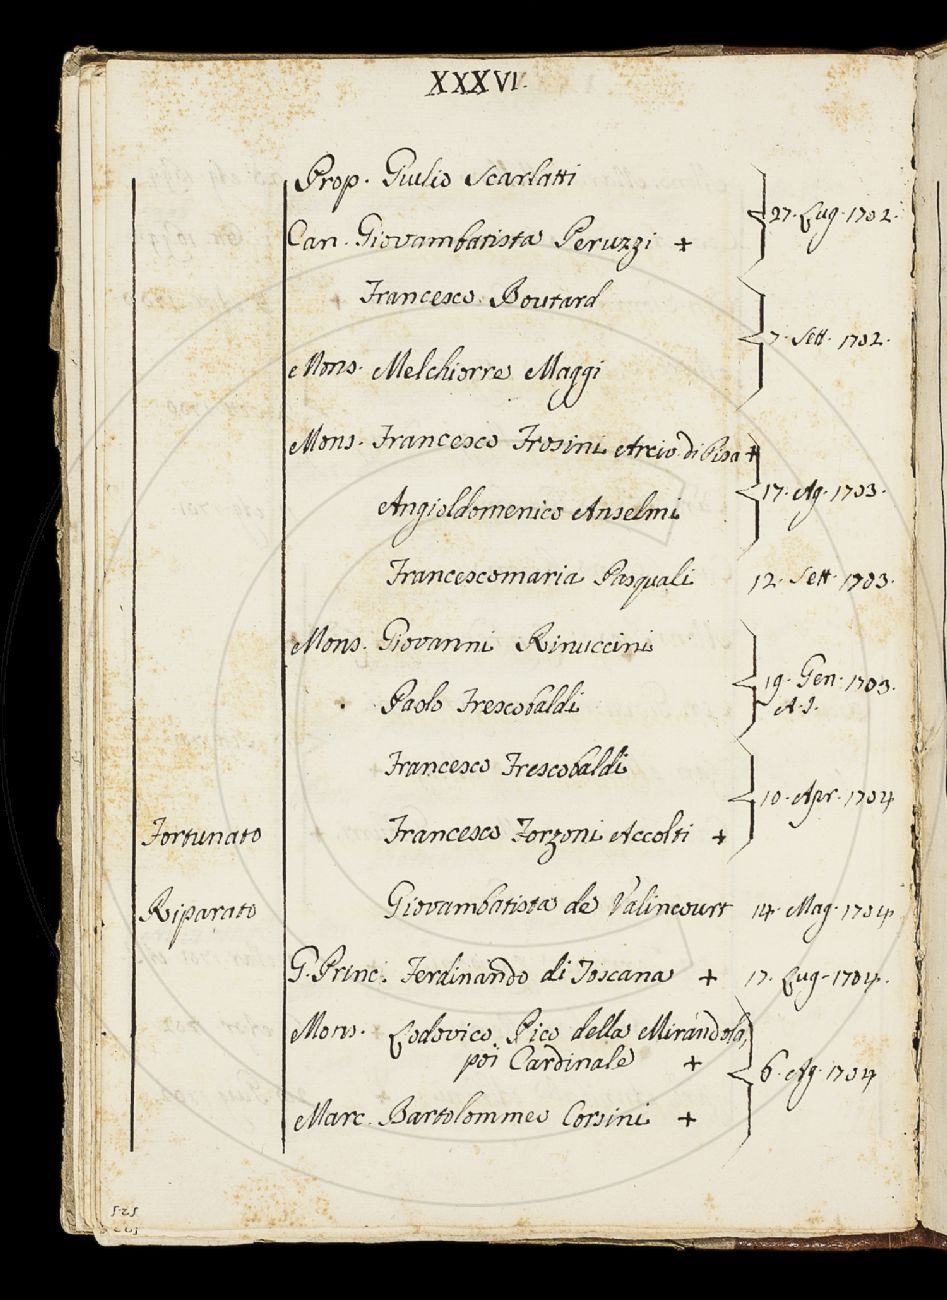 XXXVI.
Prop. Giulio Scarlatti
Can. Giovambatista Peruzzi +
27. Lug. 1702.
Francesco Boutard
Mons. Melchiorre Maggi
7. Sett. 1702.
Mons. Francesco Frosini Arciv. di Pisa +
Angioldomenico Anselmi
17. Ag. 1703.
Francescomaria Pasquali 12. Sett. 1703.
Mons. Giovanni Rinuccini
Paolo Frescobaldi
19. Gen. 1703.
A. I.
Francesco Frescobaldi
Fortunato Francesco Forzoni Accolti +
10. Apr. 1704
Riparato Giovambatista de Valincourt 14. Mag. 1704
G. Princ. Ferdinando di Toscana + 17. Lug. 1704.
Mons. Lodovico Pico della Mirandola,
poi Cardinale +
Marc. Bartolommeo Corsini +
6. Ag. 1704
525